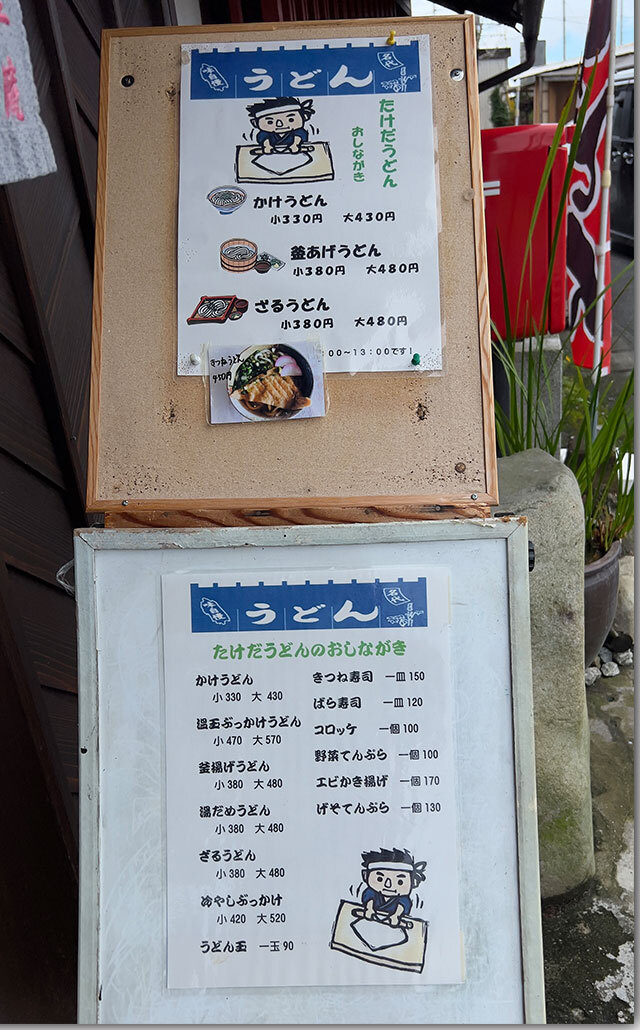 味自慢
うどん
名代
たけだうどん
おしながき
かけうどん
小330円 大430円
釜あげうどん
小380円 大480円
ざるうどん
小380円 大480円
:00~13:00です!
きつねうどん
450円
味自慢
うどん
名代
たけだうどんのおしながき
かけうどん
小 330 大 430
温玉ぶっかけうどん
小 470 大 570
釜揚げうどん
小 380 大 480
湯だめうどん
小 380 大 480
ざるうどん
小 380 大 480
冷やしぶっかけ
小 420 大 520
うどん玉 一玉 90
きつね寿司 一皿 150
ばら寿司 一皿 120
コロッケ 一個 100
野菜てんぷら 一個 100
エビかき揚げ 一個 170
げそてんぷら 一個 130